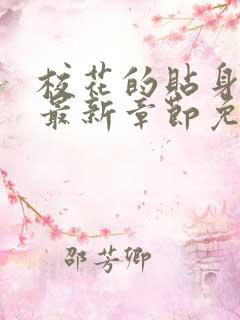 校花的贴身
最新章节免
邵芳卿